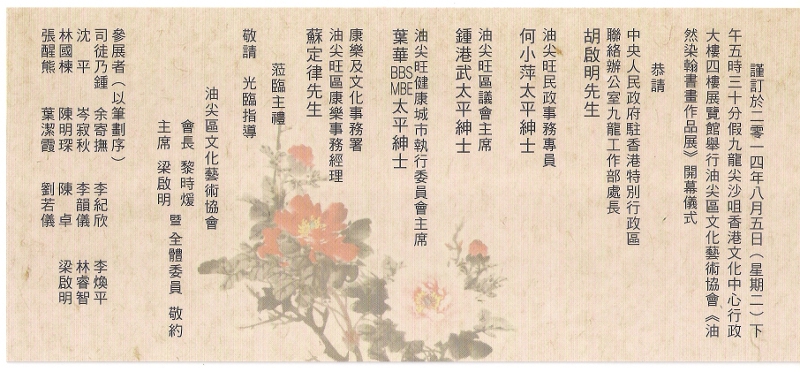 謹訂於二零一四年八月五日（星期二）下
午五時三十分假九龍尖沙咀香港文化中心行政
大樓四樓展覽館舉行油尖區文化藝術協會《油
然染翰書畫作品展》開幕儀式
恭請
中央人民政府駐香港特別行政區
聯絡辦公室九龍工作部處長
胡啟明先生
油尖旺民政事務專員
何小萍太平紳士
油尖旺區議會主席
鍾港武太平紳士
油尖旺健康城市執行委員會主席
葉華BBS MBE太平紳士
康樂及文化事務署
油尖旺區康樂事務經理
蘇定律先生
蒞臨主禮
敬請 光臨指導
油尖區文化藝術協會
會長 黎時煖
主席 梁啟明
暨 全體委員 敬約
參展者（以筆劃序）
司徒乃鍾 余寄撫 李紀欣 李煥平
沈平 岑寂秋 李韻儀 林睿智
林國棟 陳明琛 陳卓 梁啟明
張醒熊 葉潔霞 劉若儀